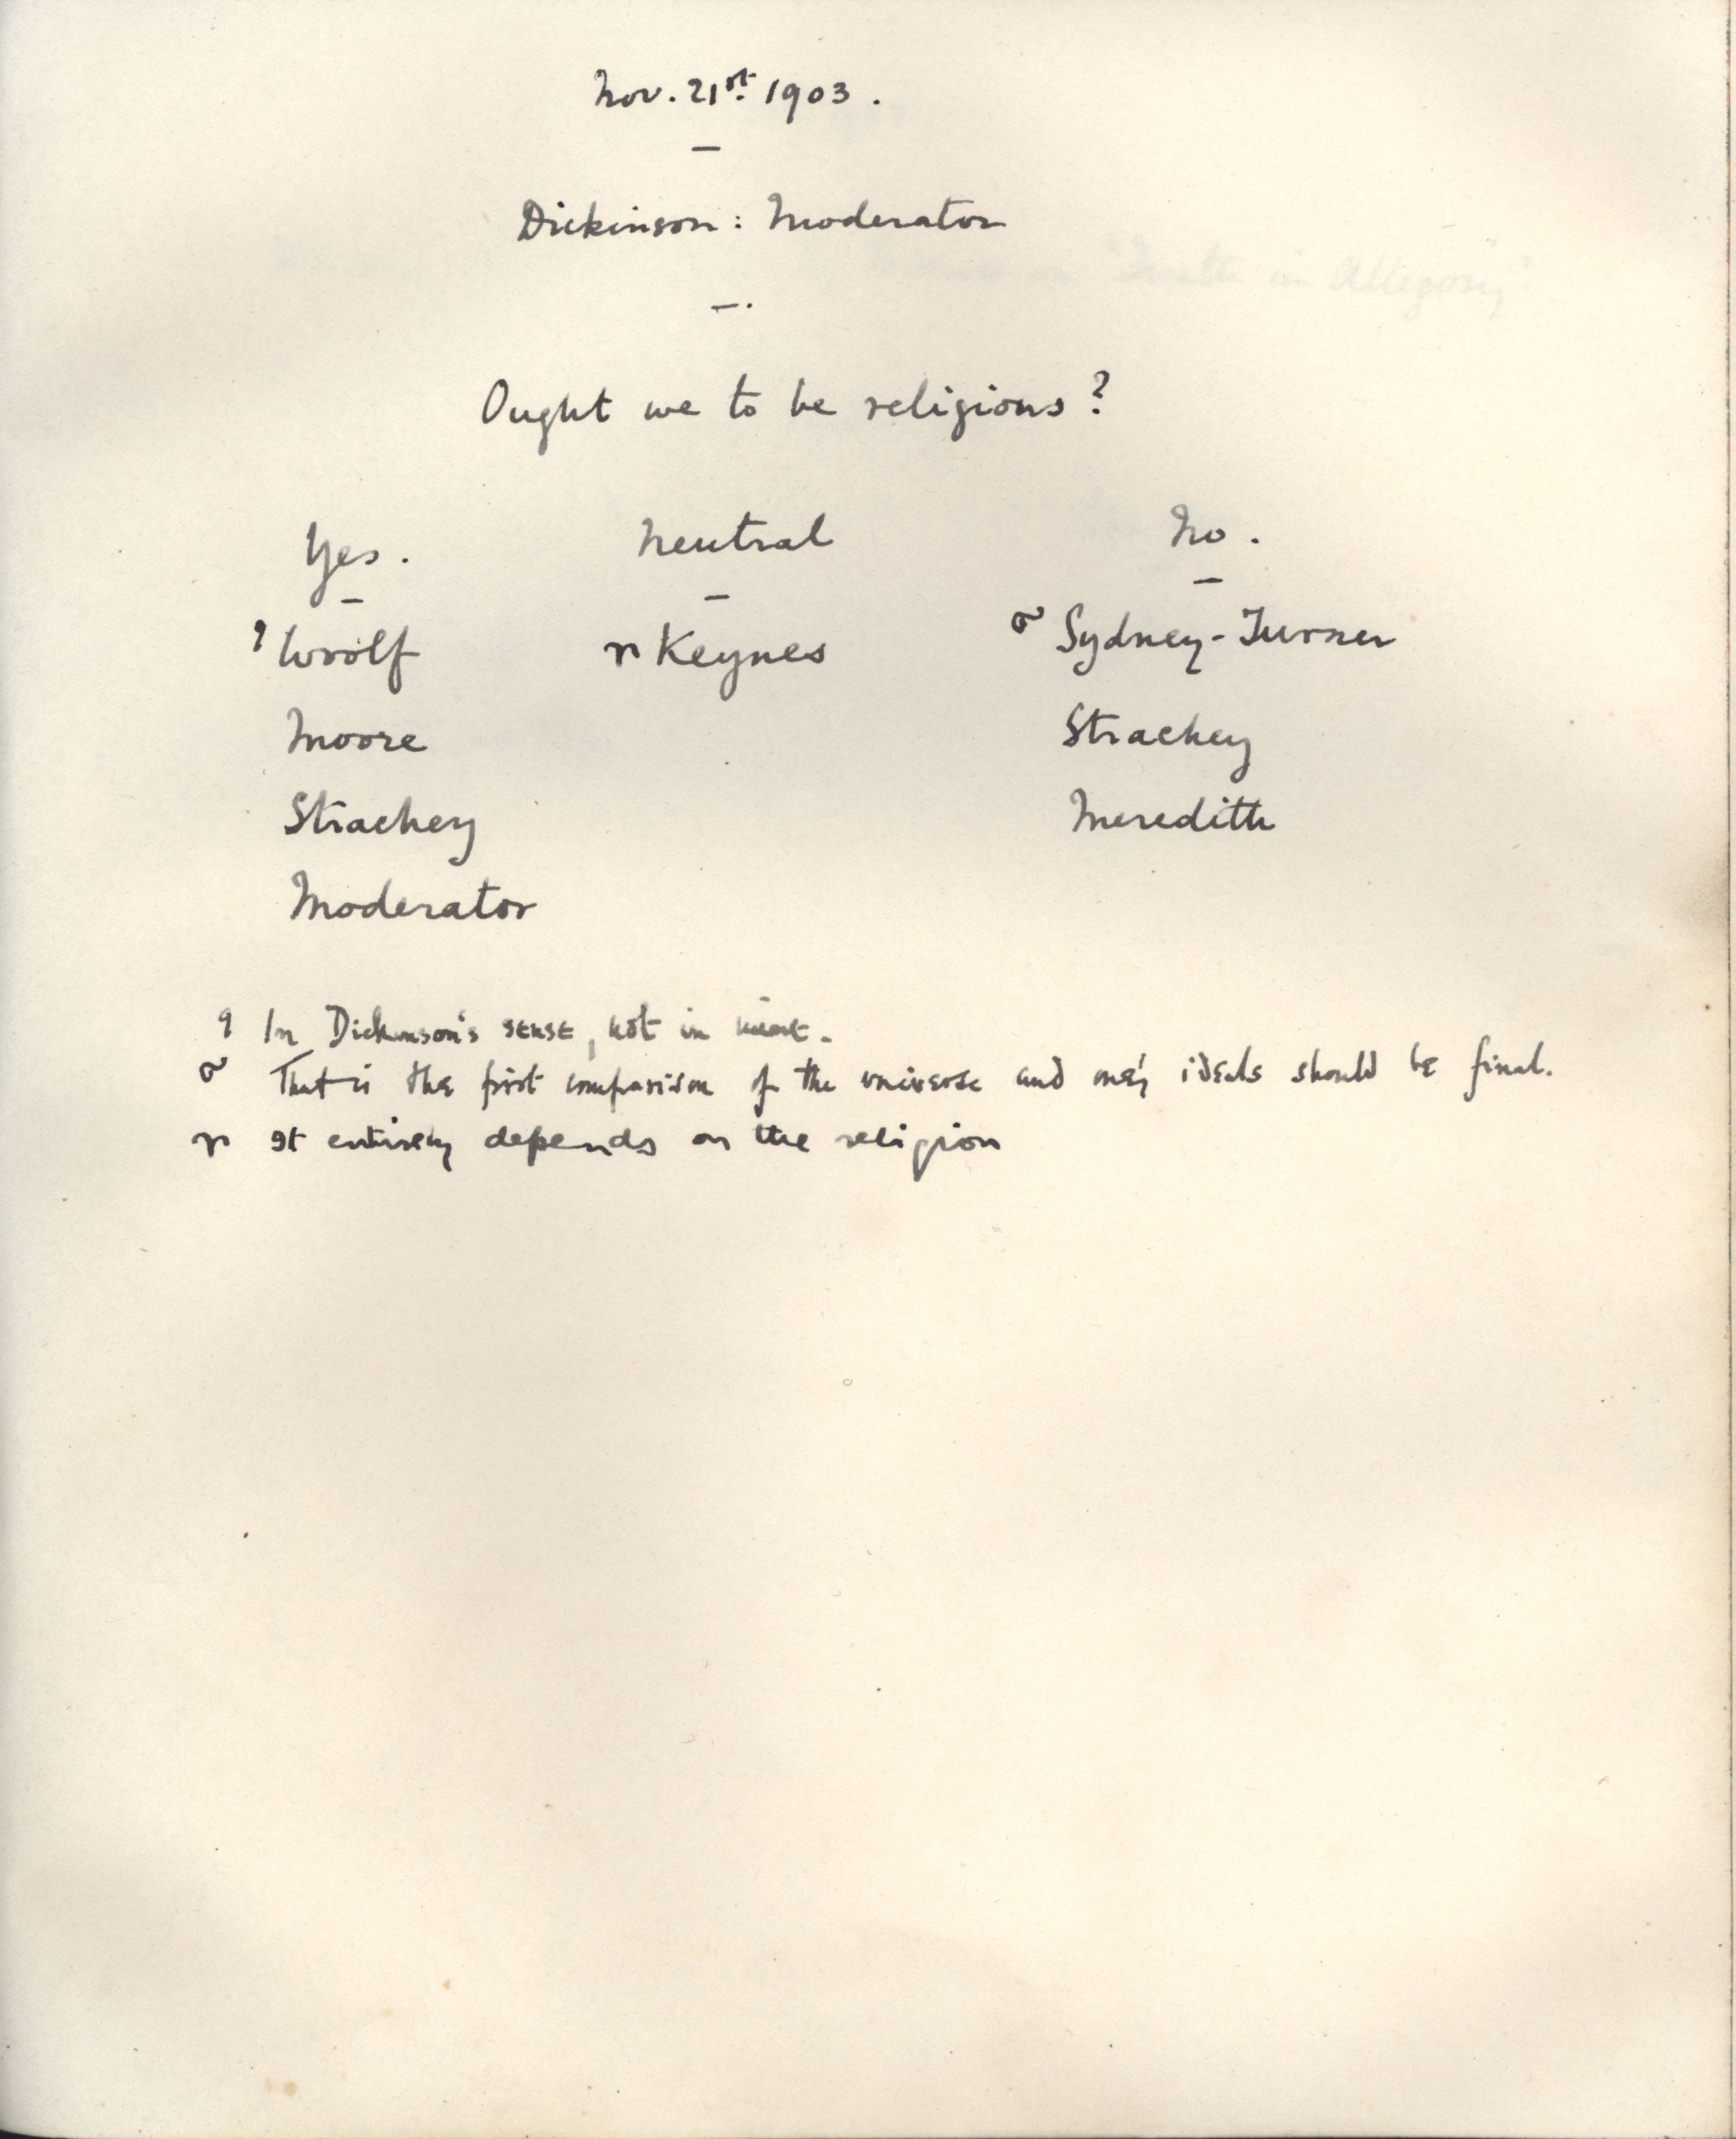 Nov. 21st. 1903.
Dickinson: Moderator
Ought we to be religious?
Yes. Neutral No.
9 Woolf r Keynes σ Sydney-Turner
Moore Strachey
Strachey Meredith
Moderator
9 In Dickinson's sense, not in
σ That is the first comparison of the universe and one's ideals should be final.
r It entirely depends on the religion